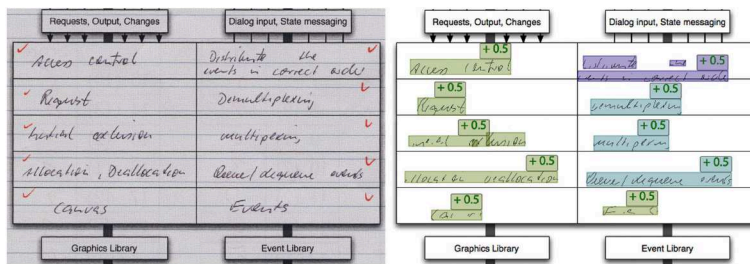 Requests, Output, Changes
Dialog input, State messaging
Access control
Distribute the
events in correct order
Request
Demultiplexing
Mutual exlusion
multiplexing
Allocation, Deallocation
Queue/dequeue events
Canvas
Events
Graphics Library
Event Library
Requests, Output, Changes
Dialog input, State messaging
+ 0.5
+ 0.5
Access control
Distribute the
events in correct order
+ 0.5
+ 0.5
Request
Demultiplexing
+ 0.5
+ 0.5
exlusion
multiplexing
+ 0.5
+ 0.5
Allocation Deallocation
Queue/dequeue events
+ 0.5
+ 0.5
Graphics Library
Event Library